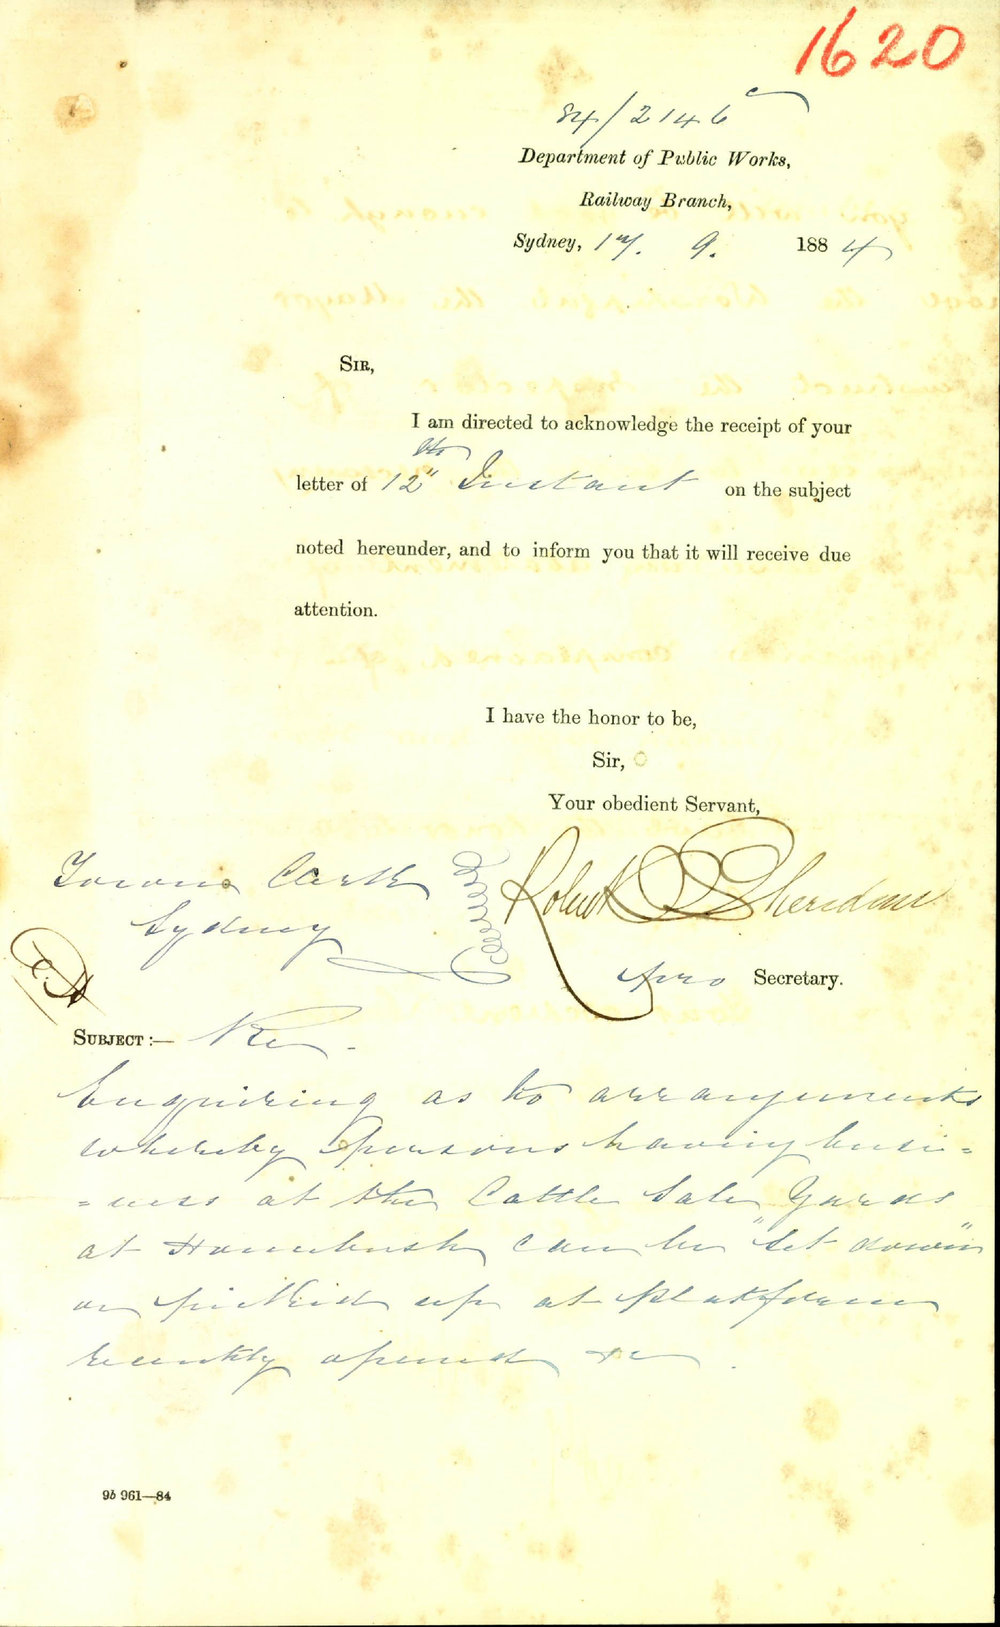 1620
84/2146
Department of Public Works,
Railway Branch,
Sydney, 17. 9. 1884
SIR,
I am directed to acknowledge the receipt of your
letter of 12th Instant on the subject
noted hereunder, and to inform you that it will receive due
attention.
I have the honor to be,
Sir,
Your obedient Servant,
Robert Sheridan
pro Secretary.
Town Clerk
Sydney
SUBJECT :— Re
Enquiring as to arrangements
whereby persons having busi=
=ness at the Cattle Sale Yards
at Homebush can be "set down"
or picked up at platform
recently opened &c
9b 961—84